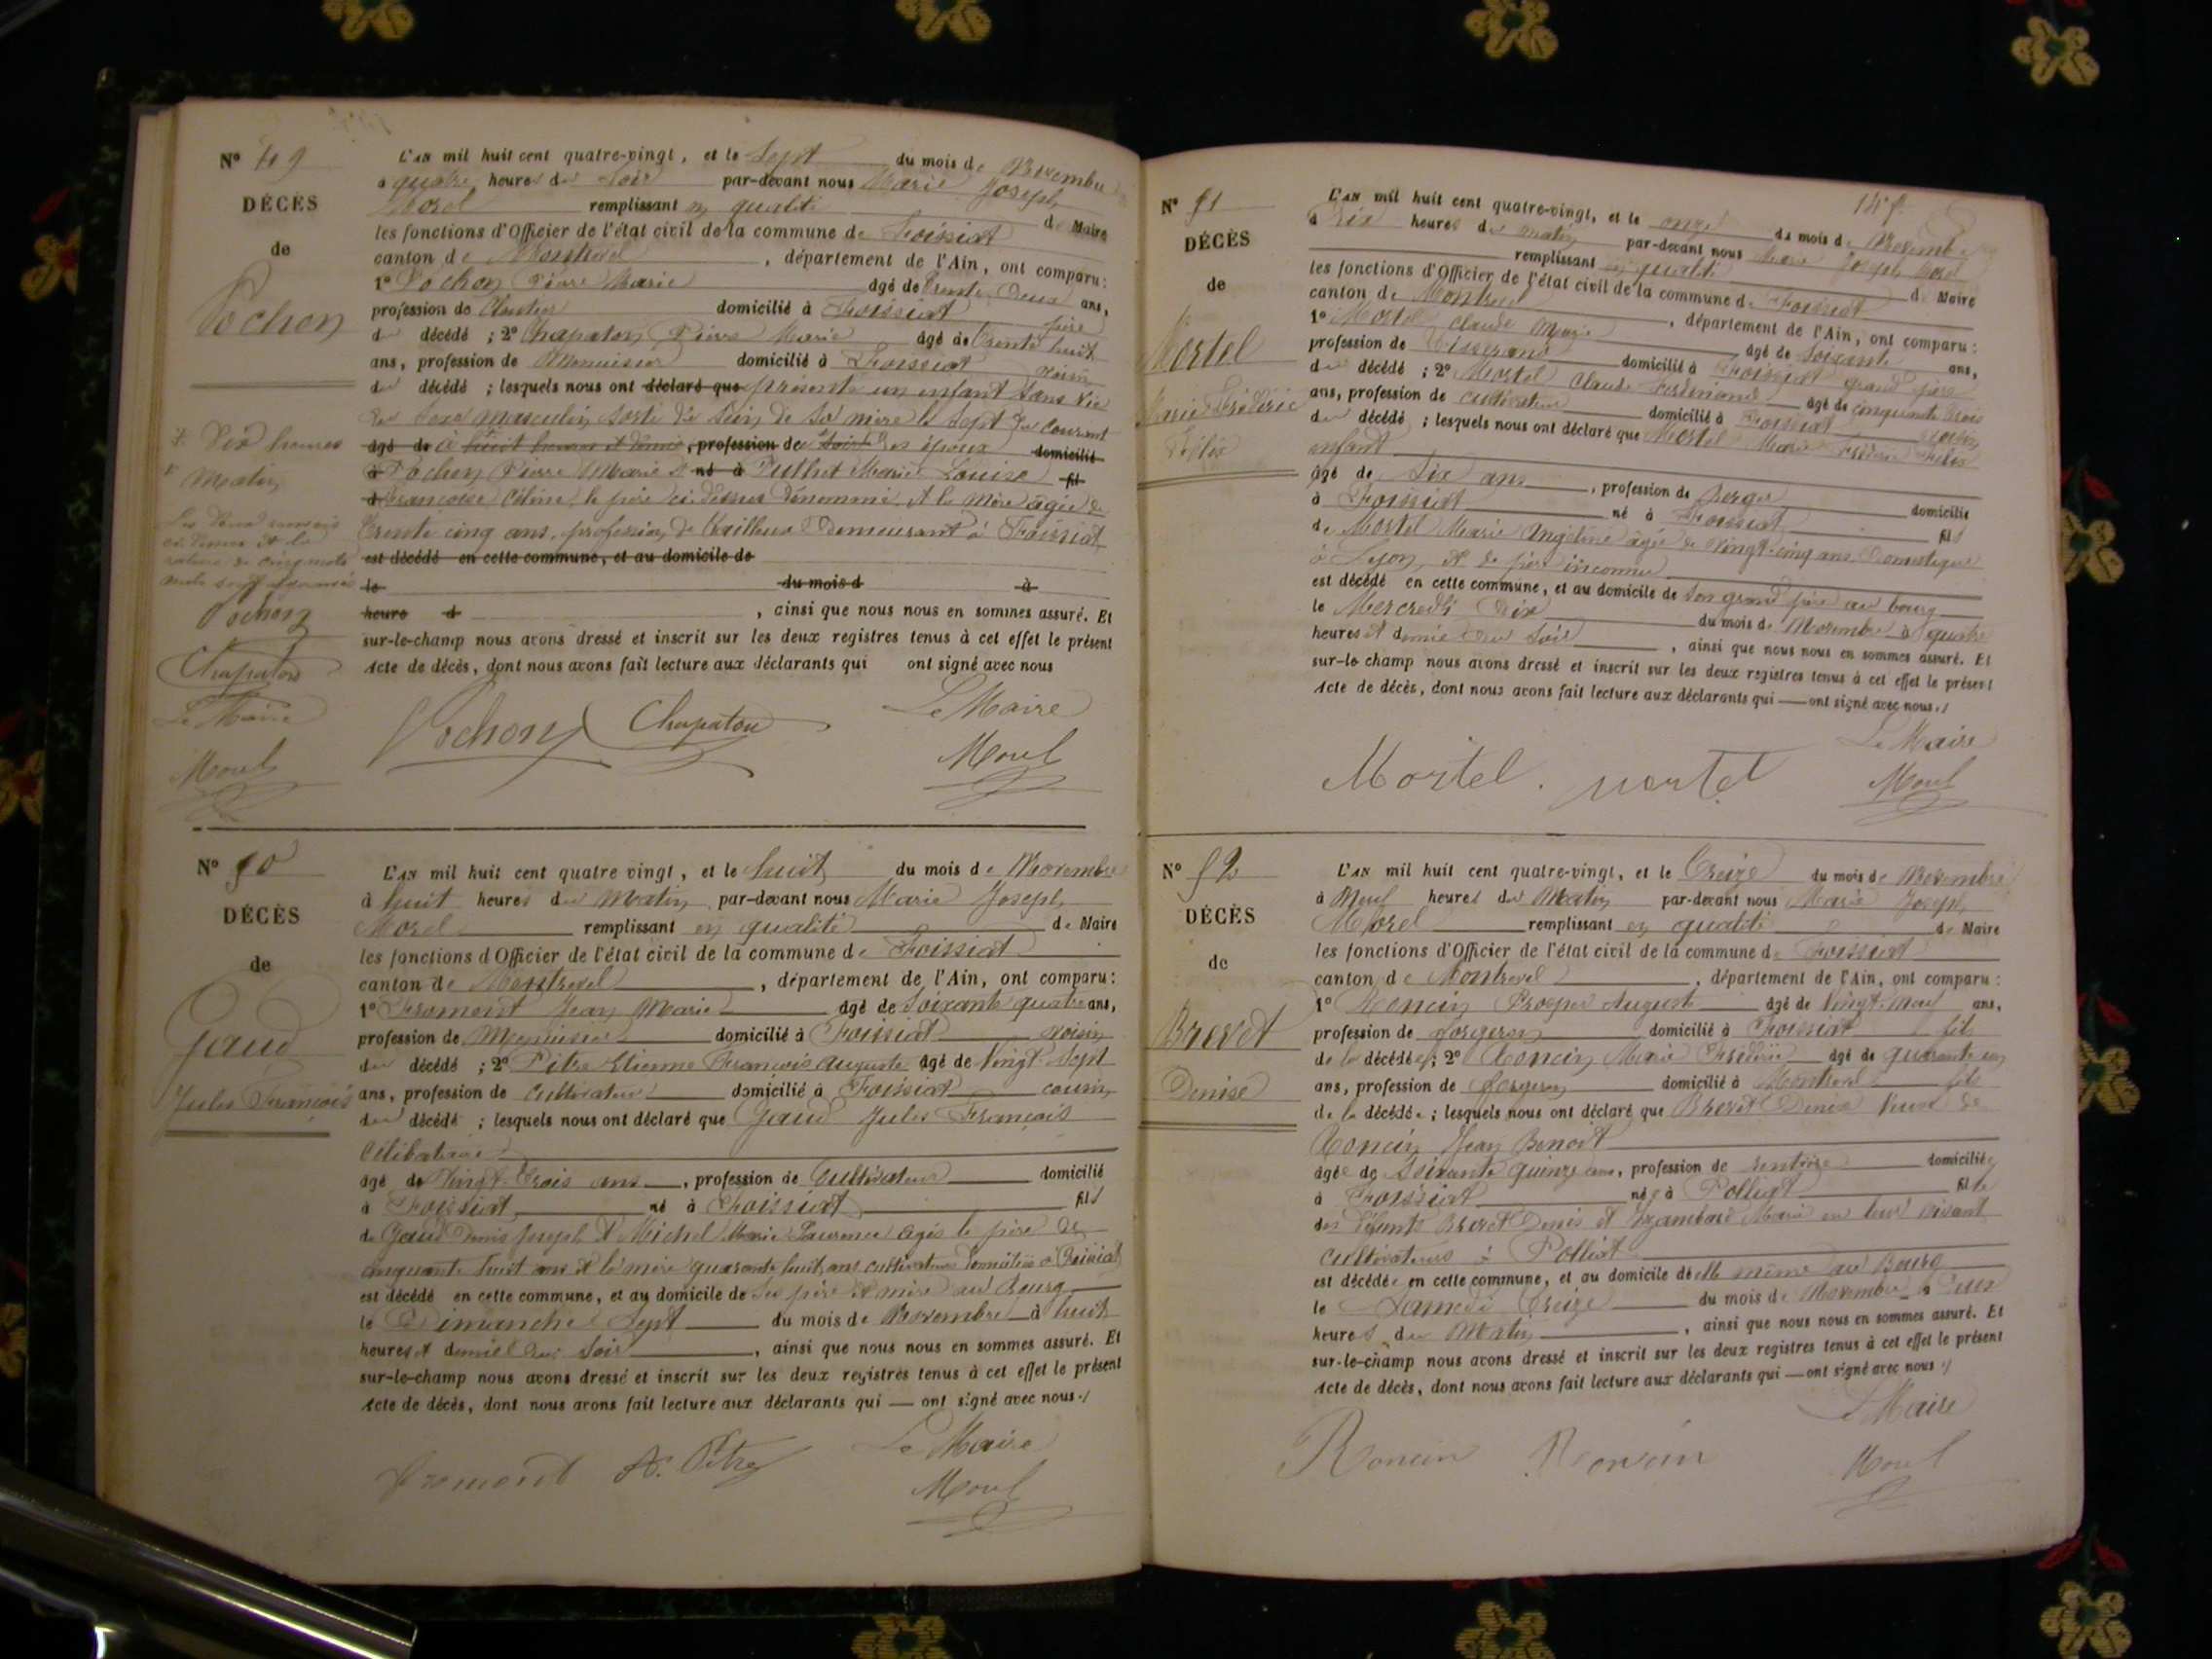 N° 49
DÉCÈS
de
Pochon
L'AN mil huit cent quatre-vingt, et le Sept du mois de Novembre
à quatre heures du Soir par-devant nous Marie Joseph
Morel remplissant en qualité de Maire
les fonctions d'Officier de l'état civil de la commune de Foissiat
canton de Montrevel, département de l'Ain, ont comparu:
1° Pochon Pierre Marie âgé de trente deux ans,
profession de domicilié à Foissiat père
du décédé ; 2° Chapaton Pierre Marie âgé de trente huit
ans, profession de Menuisier domicilié à Foissiat voisin
du décédé ; lesquels nous ont déclaré que présenté un enfant sans vie
du sexe masculin sorti du sein de sa mère le sept du courant
âgé de à huit heures et demie, profession de du soir des époux domicilié
à Pochon Pierre Marie né à Marie Louise fil
d Françoise Céline, le père ci-dessus dénommé, et la mère âgée de
trente cinq ans, profession de tailleuse demeurant à Foissiat
est décédé en cette commune, et au domicile de
le du mois d à
heure d , ainsi que nous nous en sommes assuré. Et
sur-le-champ nous avons dressé et inscrit sur les deux registres tenus à cet effet le présent
Acte de décès, dont nous avons fait lecture aux déclarants qui ont signé avec nous
heures
Matin
Pochon
Chapaton
Le Maire
Morel
Pochon Chapaton Le Maire
Morel
N° 50
DÉCÈS
de
Gaud
Jules François
L'AN mil huit cent quatre vingt, et le huit du mois de Novembre
à huit heures du Matin par-devant nous Marie Joseph
Morel remplissant en qualité de Maire
les fonctions d'Officier de l'état civil de la commune de Foissiat
canton de Montrevel, département de l'Ain, ont comparu:
1° Fromont Jean Marie âgé de Soixante quatre ans,
profession de Menuisier domicilié à Foissiat voisin
du décédé ; 2° Pitre Etienne François Auguste âgé de Vingt-Sept
ans, profession de Cultivateur domicilié à Foissiat cousin
du décédé ; lesquels nous ont déclaré que Gaud Jules François
Célibataire
âgé de Vingt-trois ans, profession de Cultivateur domicilié
à Foissiat né à Foissiat fils
de Gaud Denis Joseph et Michel Marie Laurence âgés le père de
cinquante huit ans et la mère quarante huit ans cultivateurs domiciliés à Foissiat
est décédé en cette commune, et au domicile de ses père et mère au Bourg
le Dimanche Sept du mois de Novembre à huit
heures et demie du Soir, ainsi que nous nous en sommes assuré. Et
sur-le-champ nous avons dressé et inscrit sur les deux registres tenus à cet effet le présent
Acte de décès, dont nous avons fait lecture aux déclarants qui — ont signé avec nous./
fromont A. Pitre Le Maire
Morel
N° 51
DÉCÈS
de
Mortel
Marie Frédéric
Félix
L'AN mil huit cent quatre-vingt, et le onze du mois de Novembre
à Dix heures du matin par-devant nous Marie Joseph Morel
remplissant en qualité de Maire
les fonctions d'Officier de l'état civil de la commune de Foissiat
canton de Montrevel, département de l'Ain, ont comparu:
1° Mortel Claude Marie âgé de Soixante ans,
profession de Tisserand domicilié à Foissiat grand père
du décédé ; 2° Mortel Claude Ferdinand âgé de cinquante trois
ans, profession de cultivateur domicilié à Foissiat voisin
du décédé ; lesquels nous ont déclaré que Mortel Marie Frédéric Félix
enfant
âgé de Dix ans, profession de Berger domicilié
à Foissiat né à Foissiat fils
de Mortel Marie Angéline âgée de Vingt-cinq ans Domestique
à Lyon, et de père inconnu
est décédé en cette commune, et au domicile de son grand père au bourg
le Mercredi Dix du mois de Novembre à quatre
heures et demie du Soir, ainsi que nous nous en sommes assuré. Et
sur-le champ nous avons dressé et inscrit sur les deux registres tenus à cet effet le présent
Acte de décès, dont nous avons fait lecture aux déclarants qui — ont signé avec nous./
Mortel. mortel Le Maire
Morel
N° 52
DÉCÈS
de
Brevet
Denise
L'AN mil huit cent quatre-vingt, et le Treize du mois de Novembre
à Neuf heures du Matin par-devant nous Marie Joseph
Morel remplissant en qualité de Maire
les fonctions d'Officier de l'état civil de la commune de Foissiat
canton de Montrevel, département de l'Ain, ont comparu:
1° Roncin Prosper Auguste âgé de Vingt-Neuf ans,
profession de forgeron domicilié à Foissiat fils
de la décédée ; 2° Roncin Marie Frédéric âgé de quarante un
ans, profession de forgeron domicilié à Montrevel fils
de la décédée ; lesquels nous ont déclaré que Brevet Denise Veuve de
Roncin Jean Benoit
âgée de Soixante quinze ans, profession de rentière domiciliée
à Foissiat née à Polliat fille
des défunts Brevet Denis et Marie en leur vivant
cultivateurs à Polliat
est décédée en cette commune, et au domicile d'elle même au Bourg
le Samedi Treize du mois de Novembre à Deux
heures du Matin, ainsi que nous nous en sommes assuré. Et
sur-le-champ nous avons dressé et inscrit sur les deux registres tenus à cet effet le présent
Acte de décès, dont nous avons fait lecture aux déclarants qui — ont signé avec nous./
Roncin Roncin Le Maire
Morel